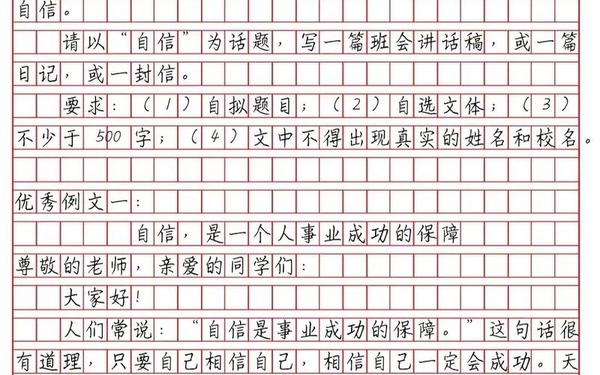 自信。
请以“自信”为话题，写一篇班会讲话稿，或一篇
日记，或一封信。
要求：（1）自拟题目；（2）自选文体；（3）
不少于500字；（4）文中不得出现真实的姓名和校名。
优秀例文一：
自信，是一个人事业成功的保障
尊敬的老师，亲爱的同学们：
大家好！
人们常说：“自信是事业成功的保障。”这句话很
有道理，只要自己相信自己，相信自己一定会成功。天